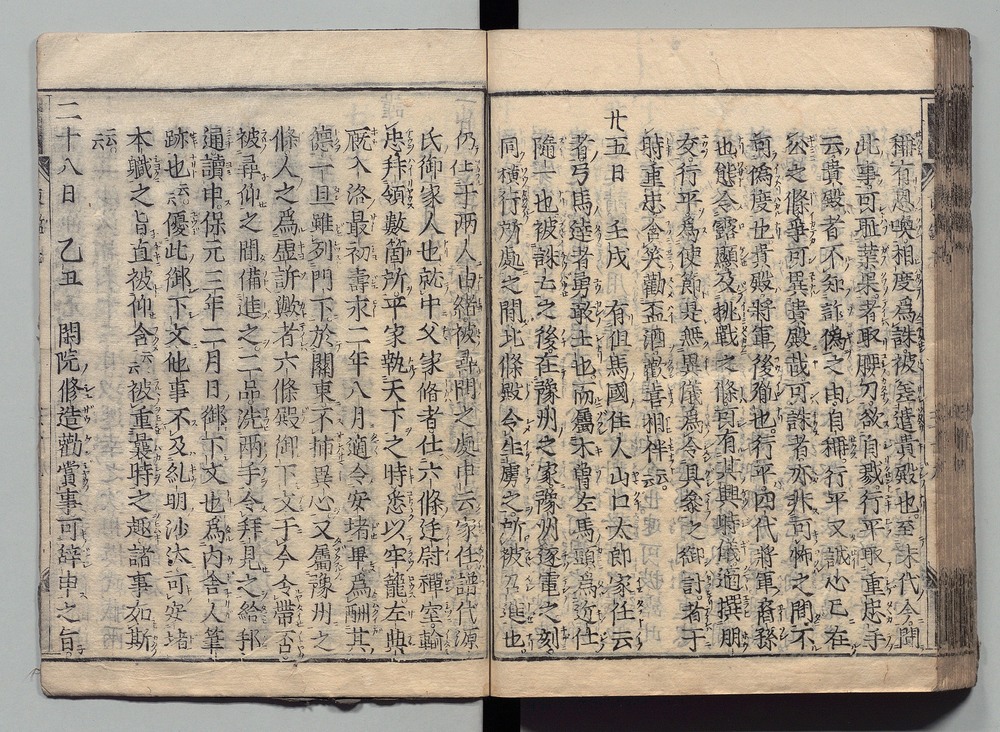 稱有恩喚相度爲誅被差遣貴殿也至末代今聞
此事可耻葉果者取腰刀欲自戮行平取重忠手
云貴殿者不知詐僞之由自稱行平又誠心已在
公之條爭可異貴殿哉可誅者亦非可怖之間不
可僞度也貴殿將軍後胤也行平四代將軍裔孫
也態令露顯及挑戰之條可有其興時儀適撰朋
友行平爲使節是無異儀爲令具參之御計者于
時重忠含笑勸盃酒歡喜相伴云云
廿五日 壬戌 有但馬國住人山口太郎家任云
者弓馬達者勇敢士也而屬木曾左馬頭爲近仕
隨一也被誅亡之後在豫州之家豫州逐電之刻
同横行所處之間北條殿令生虜之所被召進也
仍仕于兩人由緒被尋問之處申云家任譜代源
氏御家人也就中父家脩者仕六條廷尉禪室輸
忠拜領數箇所平家執天下之時悉以牢籠左典
厩入洛最初壽永二年八月適令安堵畢爲酬其
德一旦雖列門下於關東不插異心又屬豫州之
條人之爲虚訴歟者六條殿御下文于今令帶否
被尋仰之間備進之二品洗兩手令拜見之給邦
通讀申保元三年二月日御下文也爲内舎人筆
跡也云云優此御下文他事不及糺明沙汰可安堵
本職之旨直被仰含云云被重曩時之趣諸事如斯
云云
二十八日 乙丑 閑院修造勸賞事可辭申之旨